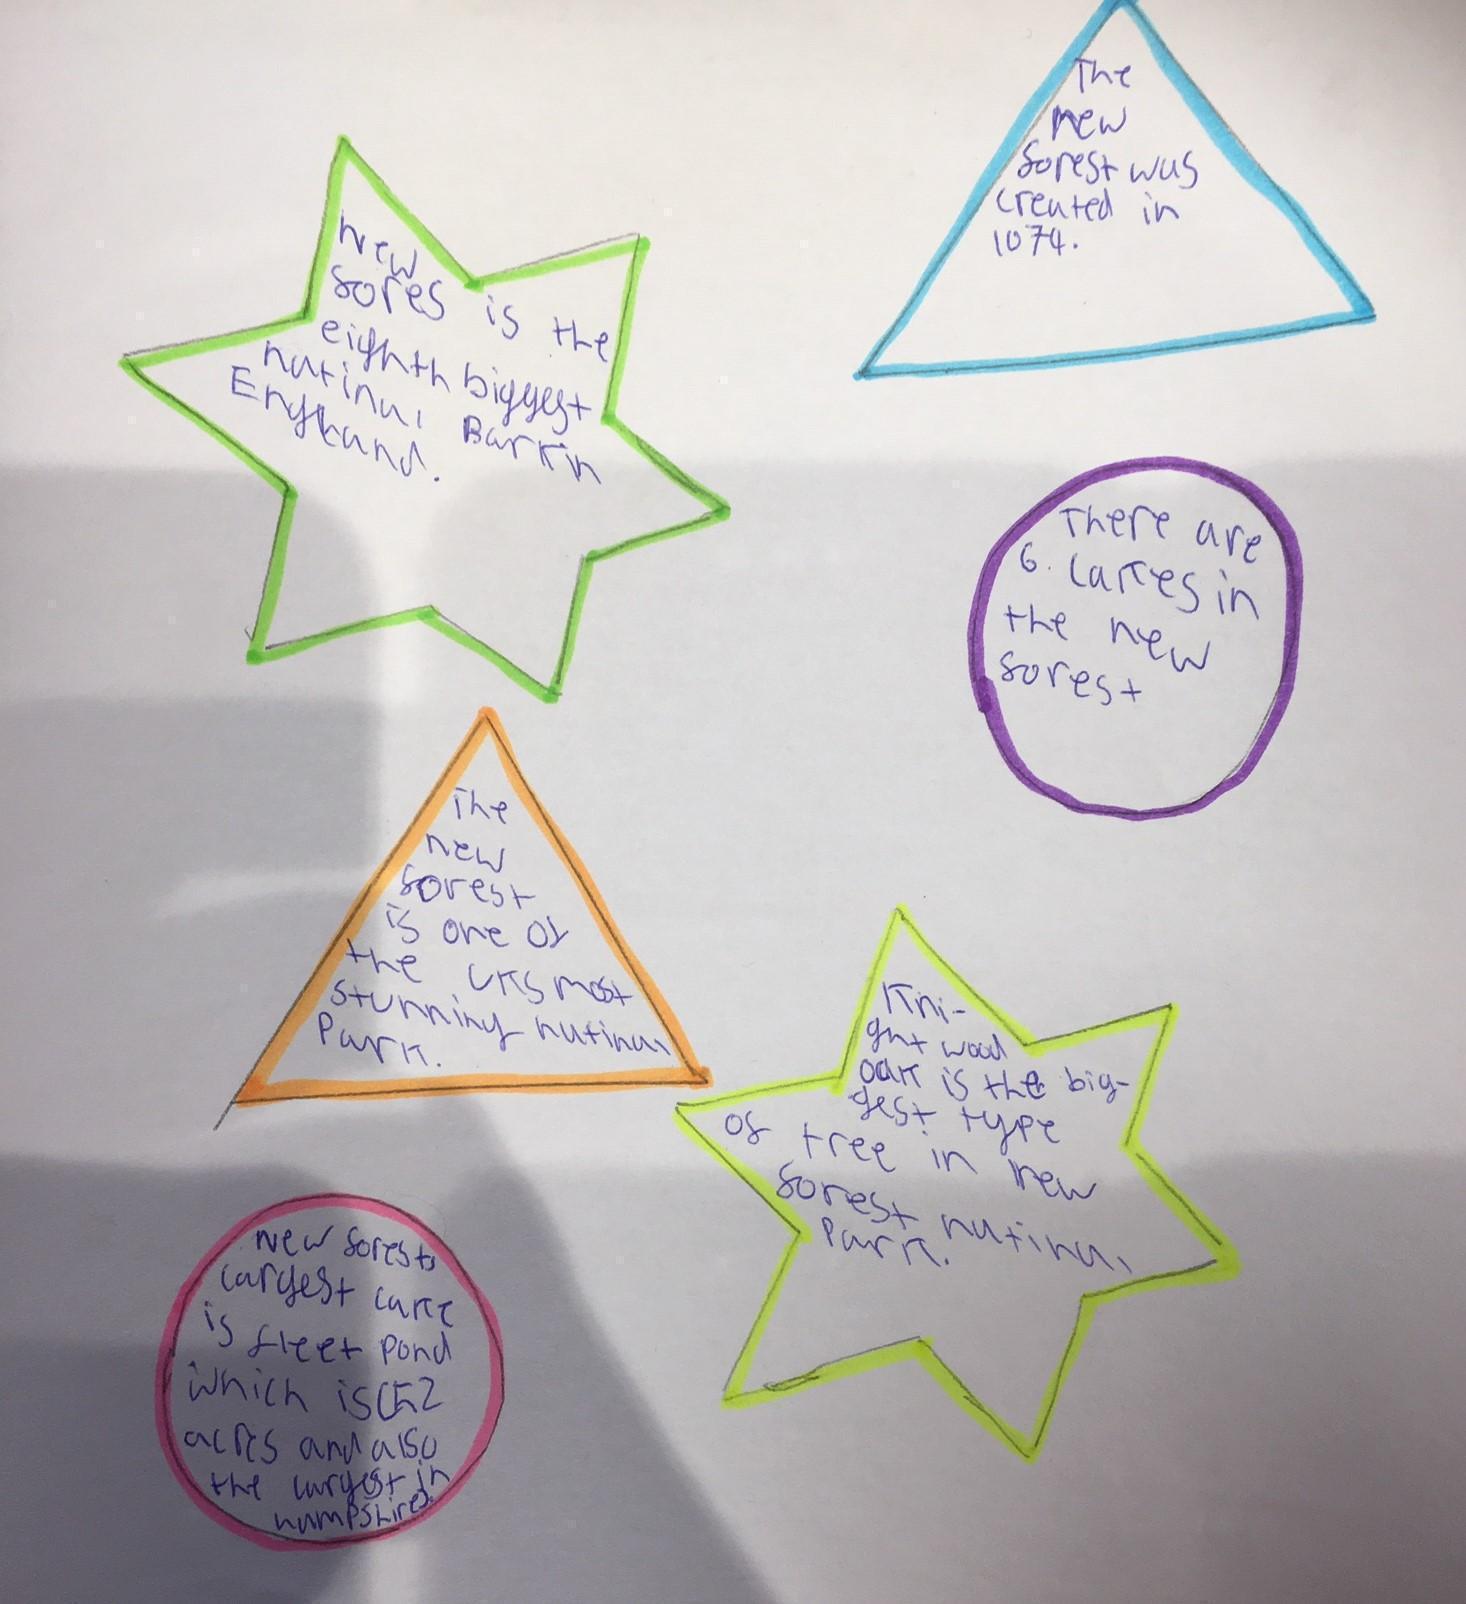 The
new
forest was
created in
1074.
New
fores is the
eighth biggest
natinal Barkin
England.
There are
6. Lakes in
the new
forest
The
new
forest
is one of
the UKs most
stunning natinal
Park.
Kni-
ght wood
oak is the big-
gest type
of tree in new
forest natinal
Park.
New forests
largest lake
is fleet pond
which is
acres and also
the largest in
hampshire.